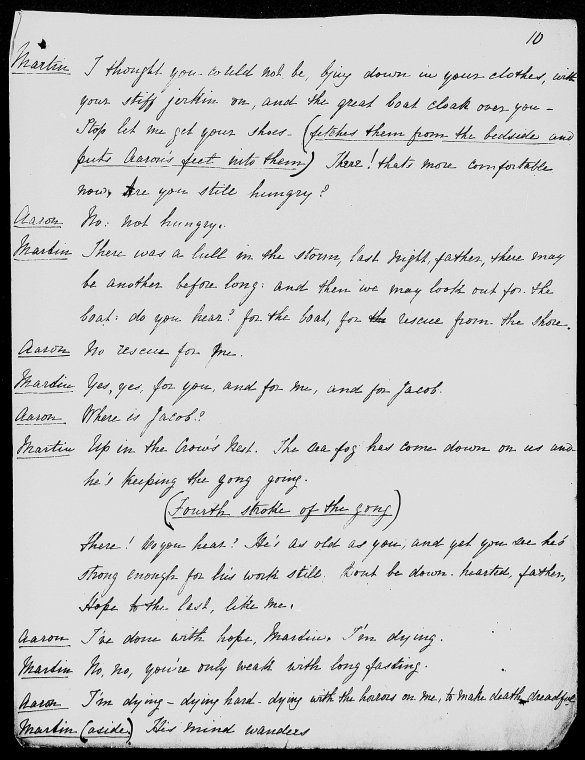 10
Martin I thought you could not be, lying down in your clothes, with
your stiff jerkin on, and the great boat cloak over you -
Stop let me get your shoes - (fetches them from the bedside and
puts Aaron's feet into them) There! thats more comfortable
now, Are you still hungry?
Aaron No: not hungry.
Martin There was a lull in the storm, last night, father, there may
be another before long: and then we may look out for the
boat: do you hear? for the boat, for the rescue from the shore.
Aaron No rescue for me.
Martin Yes, yes, for you, and for me, and for Jacob.
Aaron Where is Jacob?
Martin Up in the Crow's Nest. The sea fog has come down on us and
he's keeping the gong going.
(Fourth stroke of the gong)
There! Do you hear? He's as old as you, and yet you see he's
strong enough for his work still. Dont be down-hearted, father,
Hope to the last, like me.
Aaron I've done with hope, Martin. I'm dying.
Martin No, no, you're only weak with long fasting.
Aaron I'm dying - dying hard - dying with the horrors on me, to make death dreadful
Martin (aside) His mind wanders